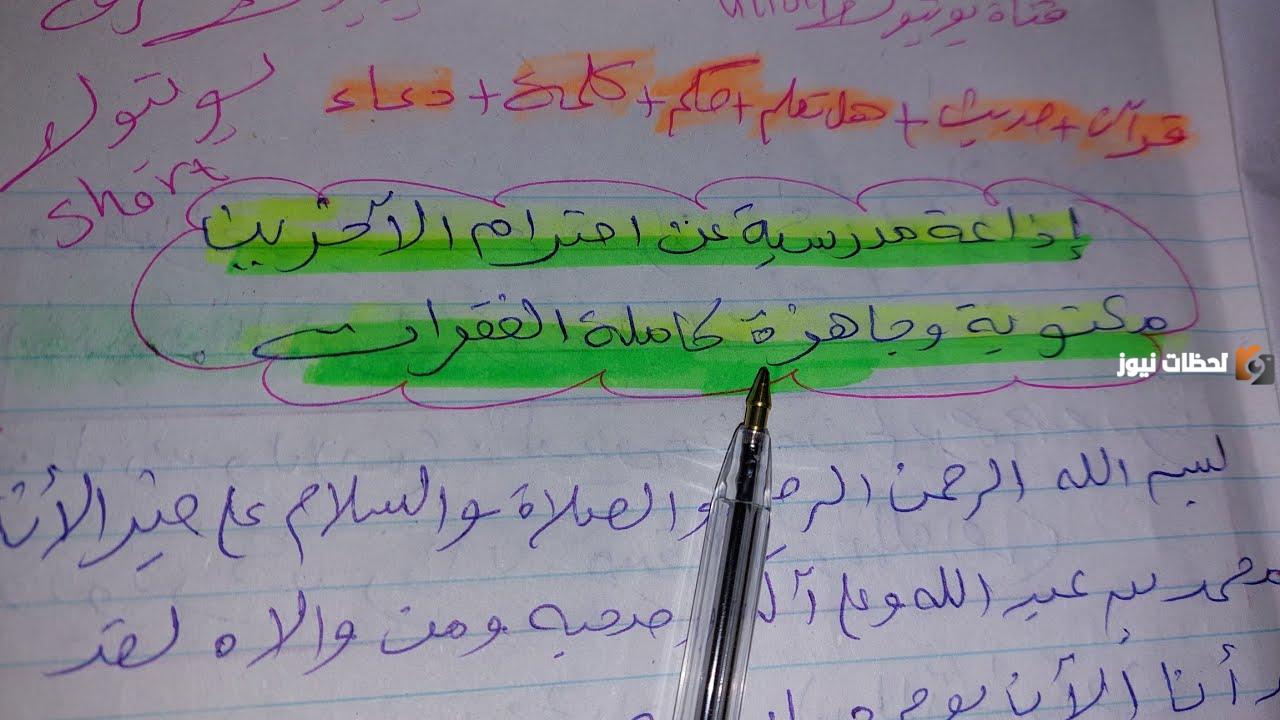 قناة يوتيوب
قرآن + حديث + هل تعلم + حكم + كلمة + دعاء
short
إذاعة مدرسية عن احترام الآخرين
مكتوبة وجاهزة كاملة الفقرات
لحظات نيوز
بسم الله الرحمن الرحـ والصلاة والسلام على خير الأنا
محمد بن عبد الله وعلى آله وصحبه ومن والاه لقد
أنا الآن